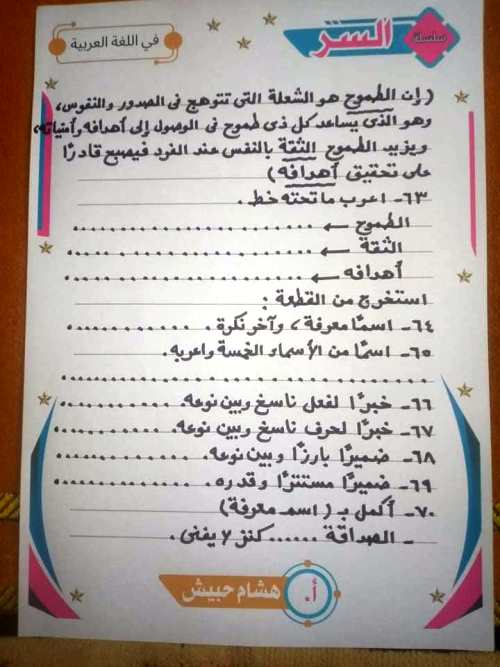 سلسلة
الستر
في اللغة العربية
( إن الطموح هو الشعلة التى تتوهج فى الصدور والنفوس،
وهو الذى يساعد كل ذى طموح فى الوصول إلى أهدافه وأمنياته،
ويزيد الطموح الثقة بالنفس عند الفرد فيصبح قادرًا
على تحقيق أهدافه )
٦٣- اعرب ما تحته خط .
الطموح ← ........................
الثقة ← ........................
أهدافه ← ........................
استخرج من القطعة :
٦٤- اسمًا معرفة ، وآخر نكرة . ............
٦٥- اسمًا من الأسماء الخمسة واعربه .
........................................
٦٦- خبرًا لفعل ناسخ وبين نوعه ............
٦٧- خبرًا لحرف ناسخ وبين نوعه . ............
٦٨- ضميرًا بارزًا وبين نوعه . ............
٦٩- ضميرًا مستترًا وقدره . ............
٧٠- أكمل بـ ( اسم معرفة )
- الصداقة ...... كنز لا يفنى .
أ.
هشام حبيش